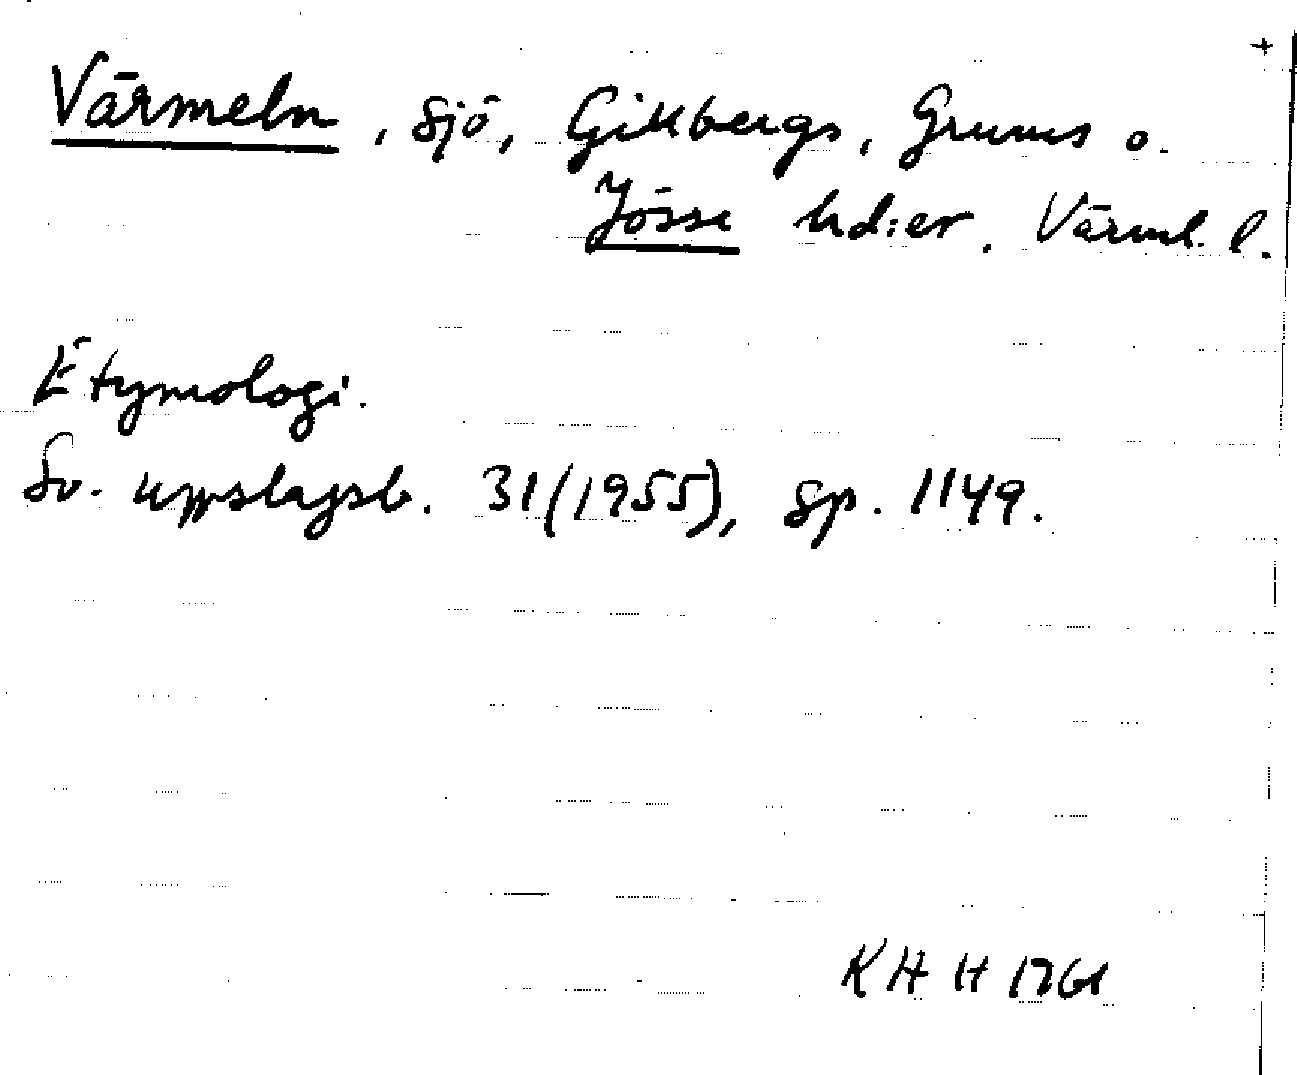 +
Värmeln, sjö, Gillbergs, Grums o.
Jösse hd:er. Värml. l.
Etymologi.
Sv. uppslagsb. 31(1955), sp. 1149.
KHH